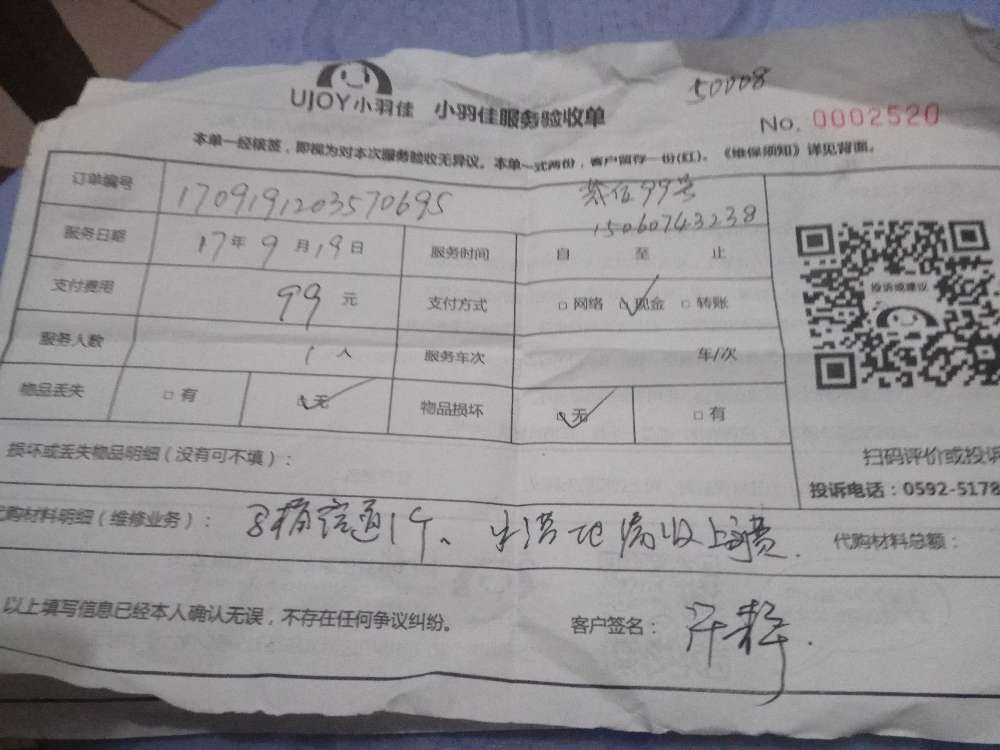 50008
UJOY小羽佳 小羽佳服务验收单
No. 0002520
本单一经核签，即视为对本次服务验收无异议。本单一式两份，客户留存一份(红)。《维保须知》详见背面。
订单编号 1709191203570695 99号
15060743238
服务日期 17年9月19日 服务时间 自 至 止
支付费用 99元 支付方式 □网络 ☑现金 □转账
投诉或建议
服务人数 1人 服务车次 车/次
物品丢失 □有 ☑无 物品损坏 ☑无 □有
损坏或丢失物品明细（没有可不填）：
扫码评价或投诉
投诉电话：0592-5178
购材料明细（维修业务）： 马桶 通1个、 地漏收上 费. 代购材料总额：
以上填写信息已经本人确认无误，不存在任何争议纠纷。 客户签名： 许